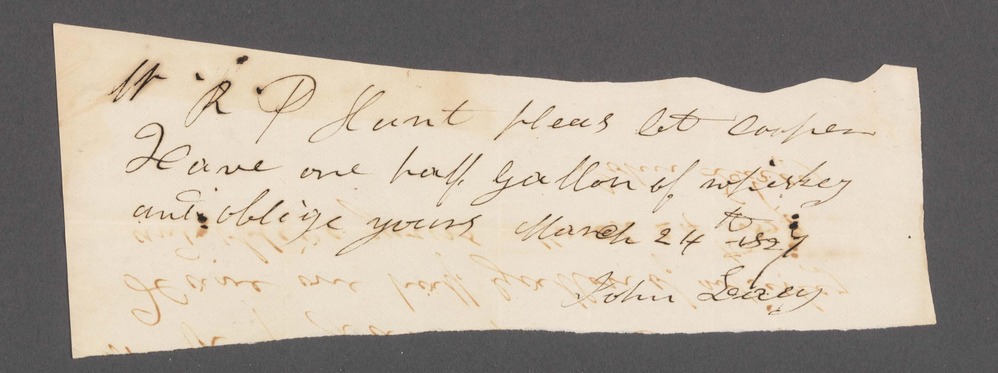 Mr R P Hunt pleas let cooper
Have one half gallon of whiskey
and oblige yours March 24th 1827
John